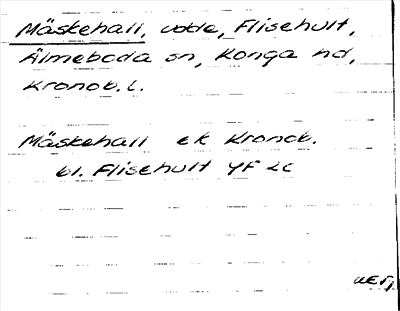 Mäskehall, udde, Flisehult,
Älmeboda sn, Konga hd,
Kronob. l.
Mäskehall ek Kronob.
bl. Flisehult YF 2c